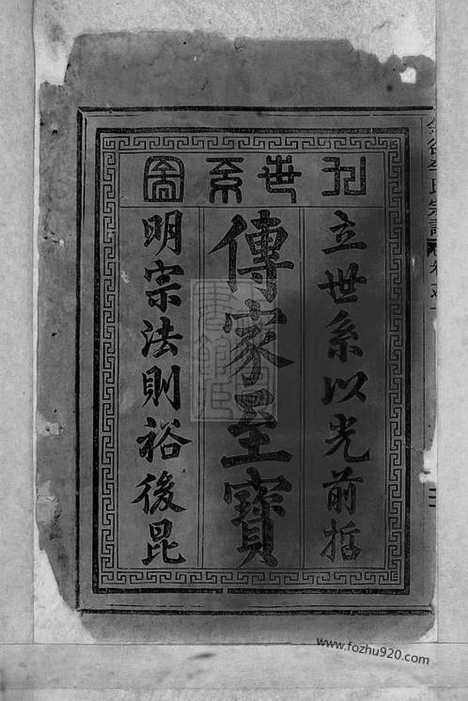 世系圖
立世系以光前哲
傳家至寶
明宗法則裕後昆
www.fozhu920.com